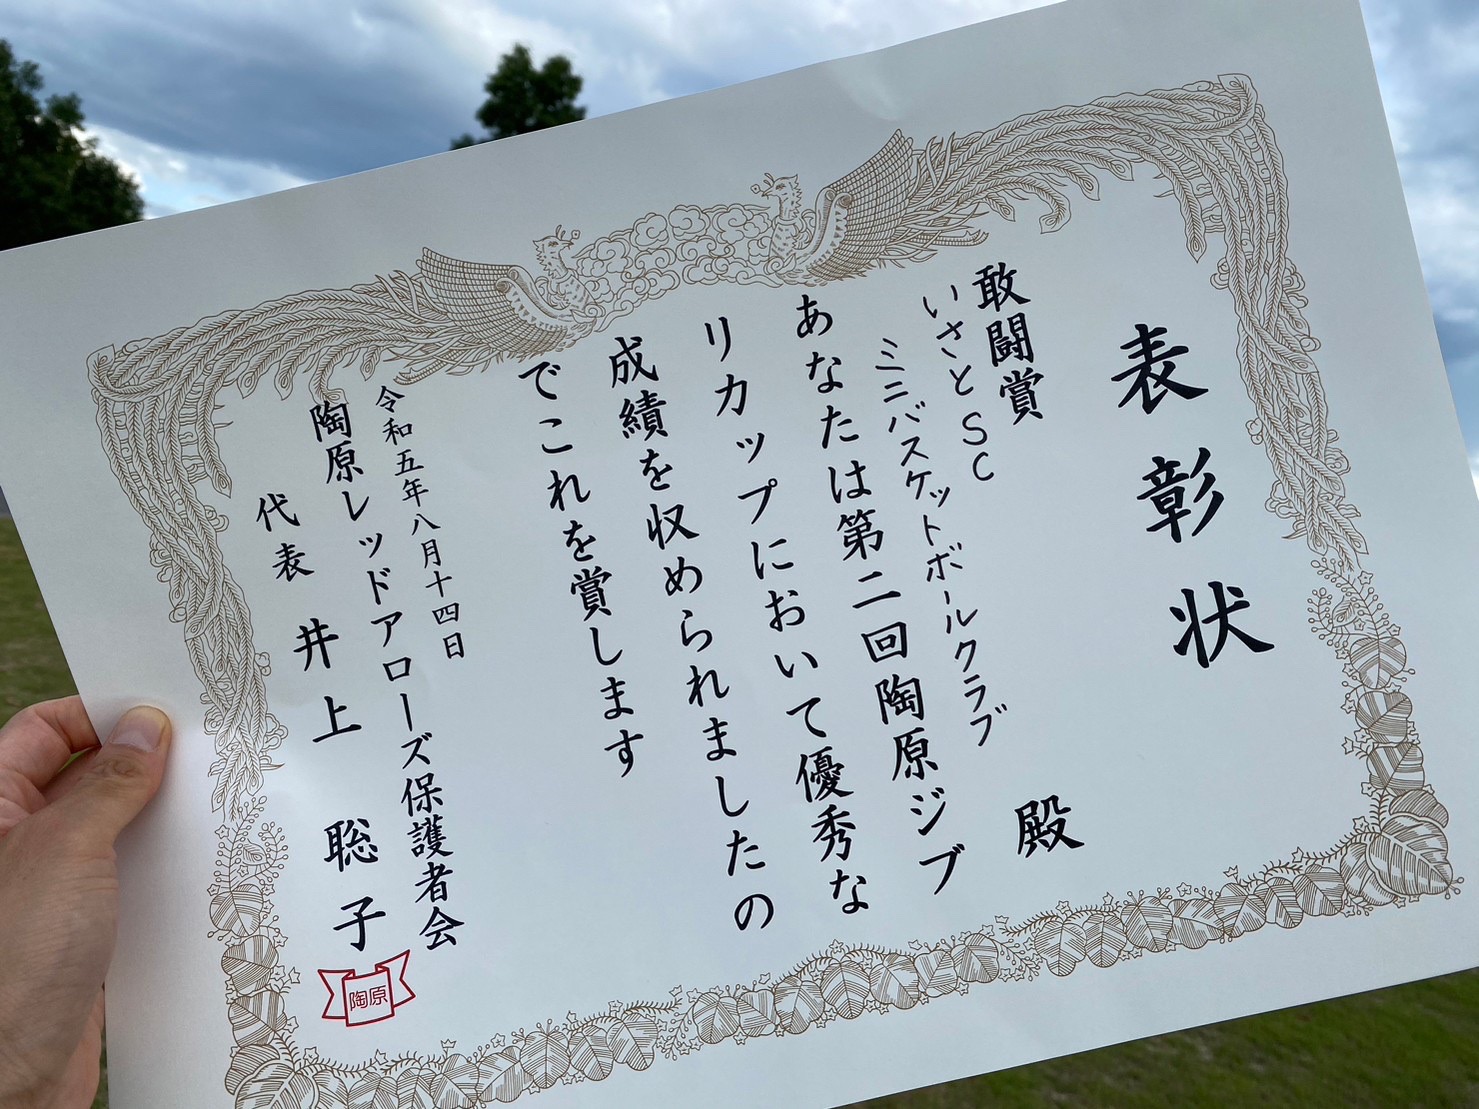 表彰状
敢闘賞
いさとSC
ミニバスケットボールクラブ
殿
あなたは第二回陶原ジブ
リカップにおいて優秀な
成績を収められましたの
でこれを賞します
令和五年八月十四日
陶原レッドアローズ保護者会
代表 井上 聡子
陶原